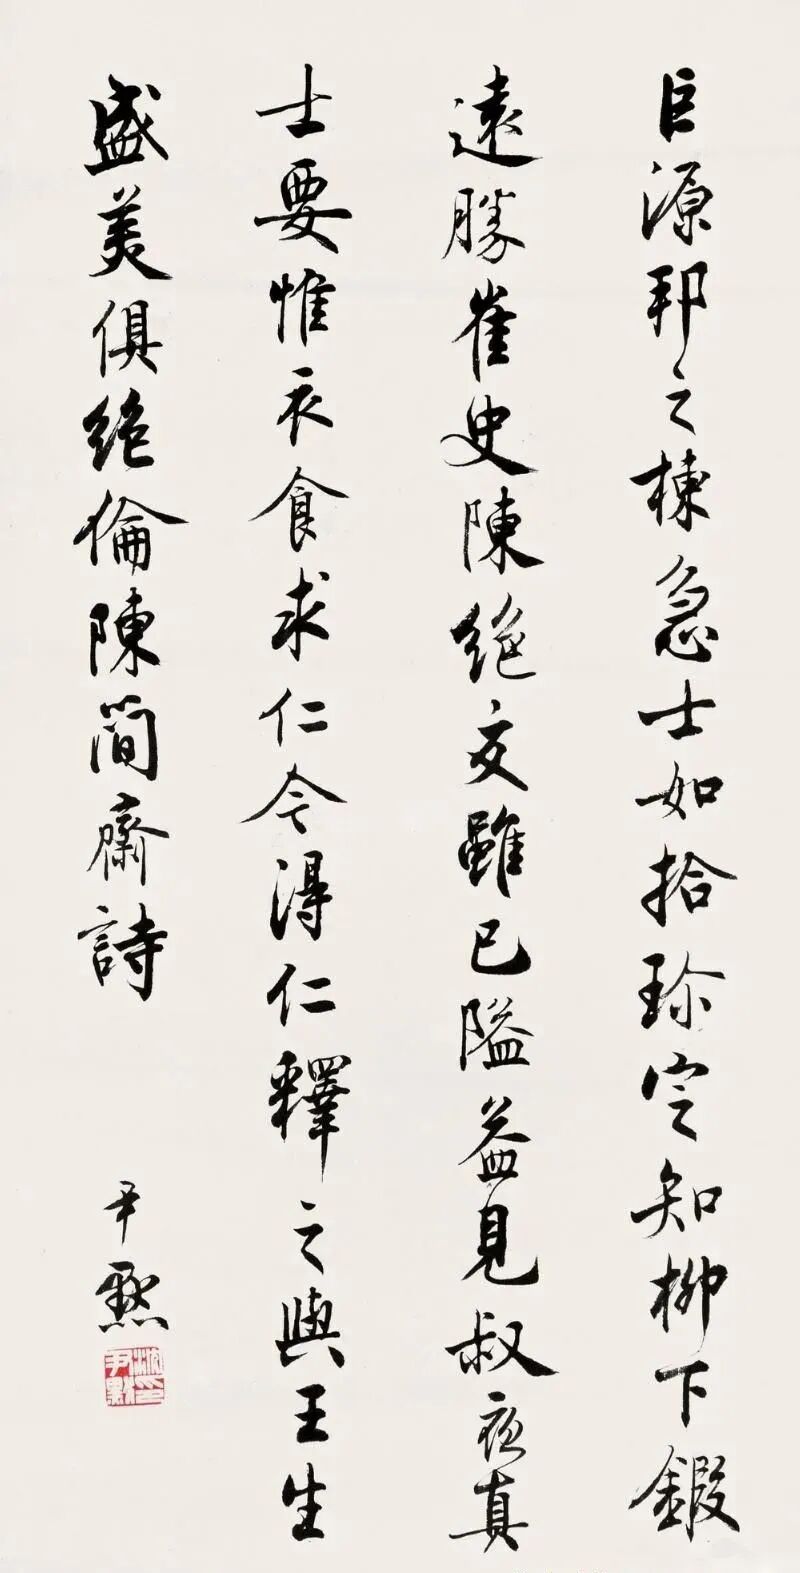 巨源邦之棟急士如拾珎定知柳下鍛
遠勝崔史陳絶交雖已隘益見叔夜真
士要惟衣食求仁今得仁釋之與王生
盛美俱絶倫陳簡齋詩
尹默
沈尹默印